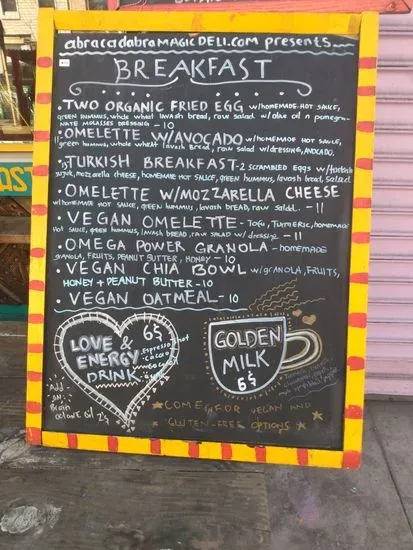 abracadabraMAGICDELI.com presents
BREAKFAST
• TWO ORGANIC FRIED EGG W/HOMEMADE HOT SAUCE,
green hummus, whole wheat lavash bread, raw salad w/olive oil n pomegra-
NATE MOLASSES DRESSING - 10
• OMELETTE W/AVOCADO w/homemade HOT SAUCE,
green hummus, whole wheat lavash bread, raw salad w/dressing, AVOCADO, - 11
• TURKISH BREAKFAST - 2 SCRAMBLED EGGS w/turkish
sujuk, mozzarella cheese, homemade HOT SAUCE, green hummus, lavash bread, salad
• OMELETTE W/MOZZARELLA CHEESE
w/homemade hot sauce, green hummus, lavash bread, raw salad. - 11
• VEGAN OMELETTE - TOFU, TURMERIC, homemade
Hot sauce, green hummus, lavash BREAD, raw salad w/dressing - 11
• OMEGA POWER GRANOLA - HOMEMADE
GRANOLA, FRUITS, PEANUT BUTTER, HONEY - 10
• VEGAN CHIA BOWL w/GRANOLA, FRUITS,
HONEY + PEANUT BUTTER - 10
• VEGAN OATMEAL - 10
LOVE &
ENERGY
DRINK
6$
espresso
- cacao
Add
on:
Brain
octane oil 2$
GOLDEN
MILK
6$
COME FOR VEGAN AND
GLUTEN-FREE OPTIONS